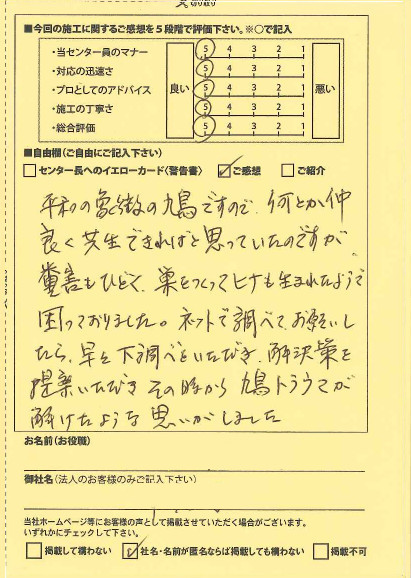 ■今回の施工に関するご感想を5段階で評価下さい。※○で記入
・当センター員のマナー 5 4 3 2 1
・対応の迅速さ 5 4 3 2 1
・プロとしてのアドバイス 良い 5 4 3 2 1 悪い
・施工の丁寧さ 5 4 3 2 1
・総合評価 5 4 3 2 1
■自由欄(ご自由にご記入下さい)
センター長へのイエローカード(警告書) ご感想 ご紹介
平和の象徴の鳩ですので、何とか仲
良く共生できればと思っていたのですが
糞害もひどく、巣をつくってヒナも生まれたようで
困っておりました。ネットで調べて、お願いし
たら、早々下調べをいただき、解決策を
提案いただき その時から 鳩トラウマが
解けたような思いがしました
お名前(お役職)
御社名(法人のお客様のみご記入下さい)
当社ホームページ等にお客様の声として掲載させていただく場合がございます。
いずれかにチェックして下さい。
掲載して構わない 社名・名前が匿名ならば掲載しても構わない 掲載不可